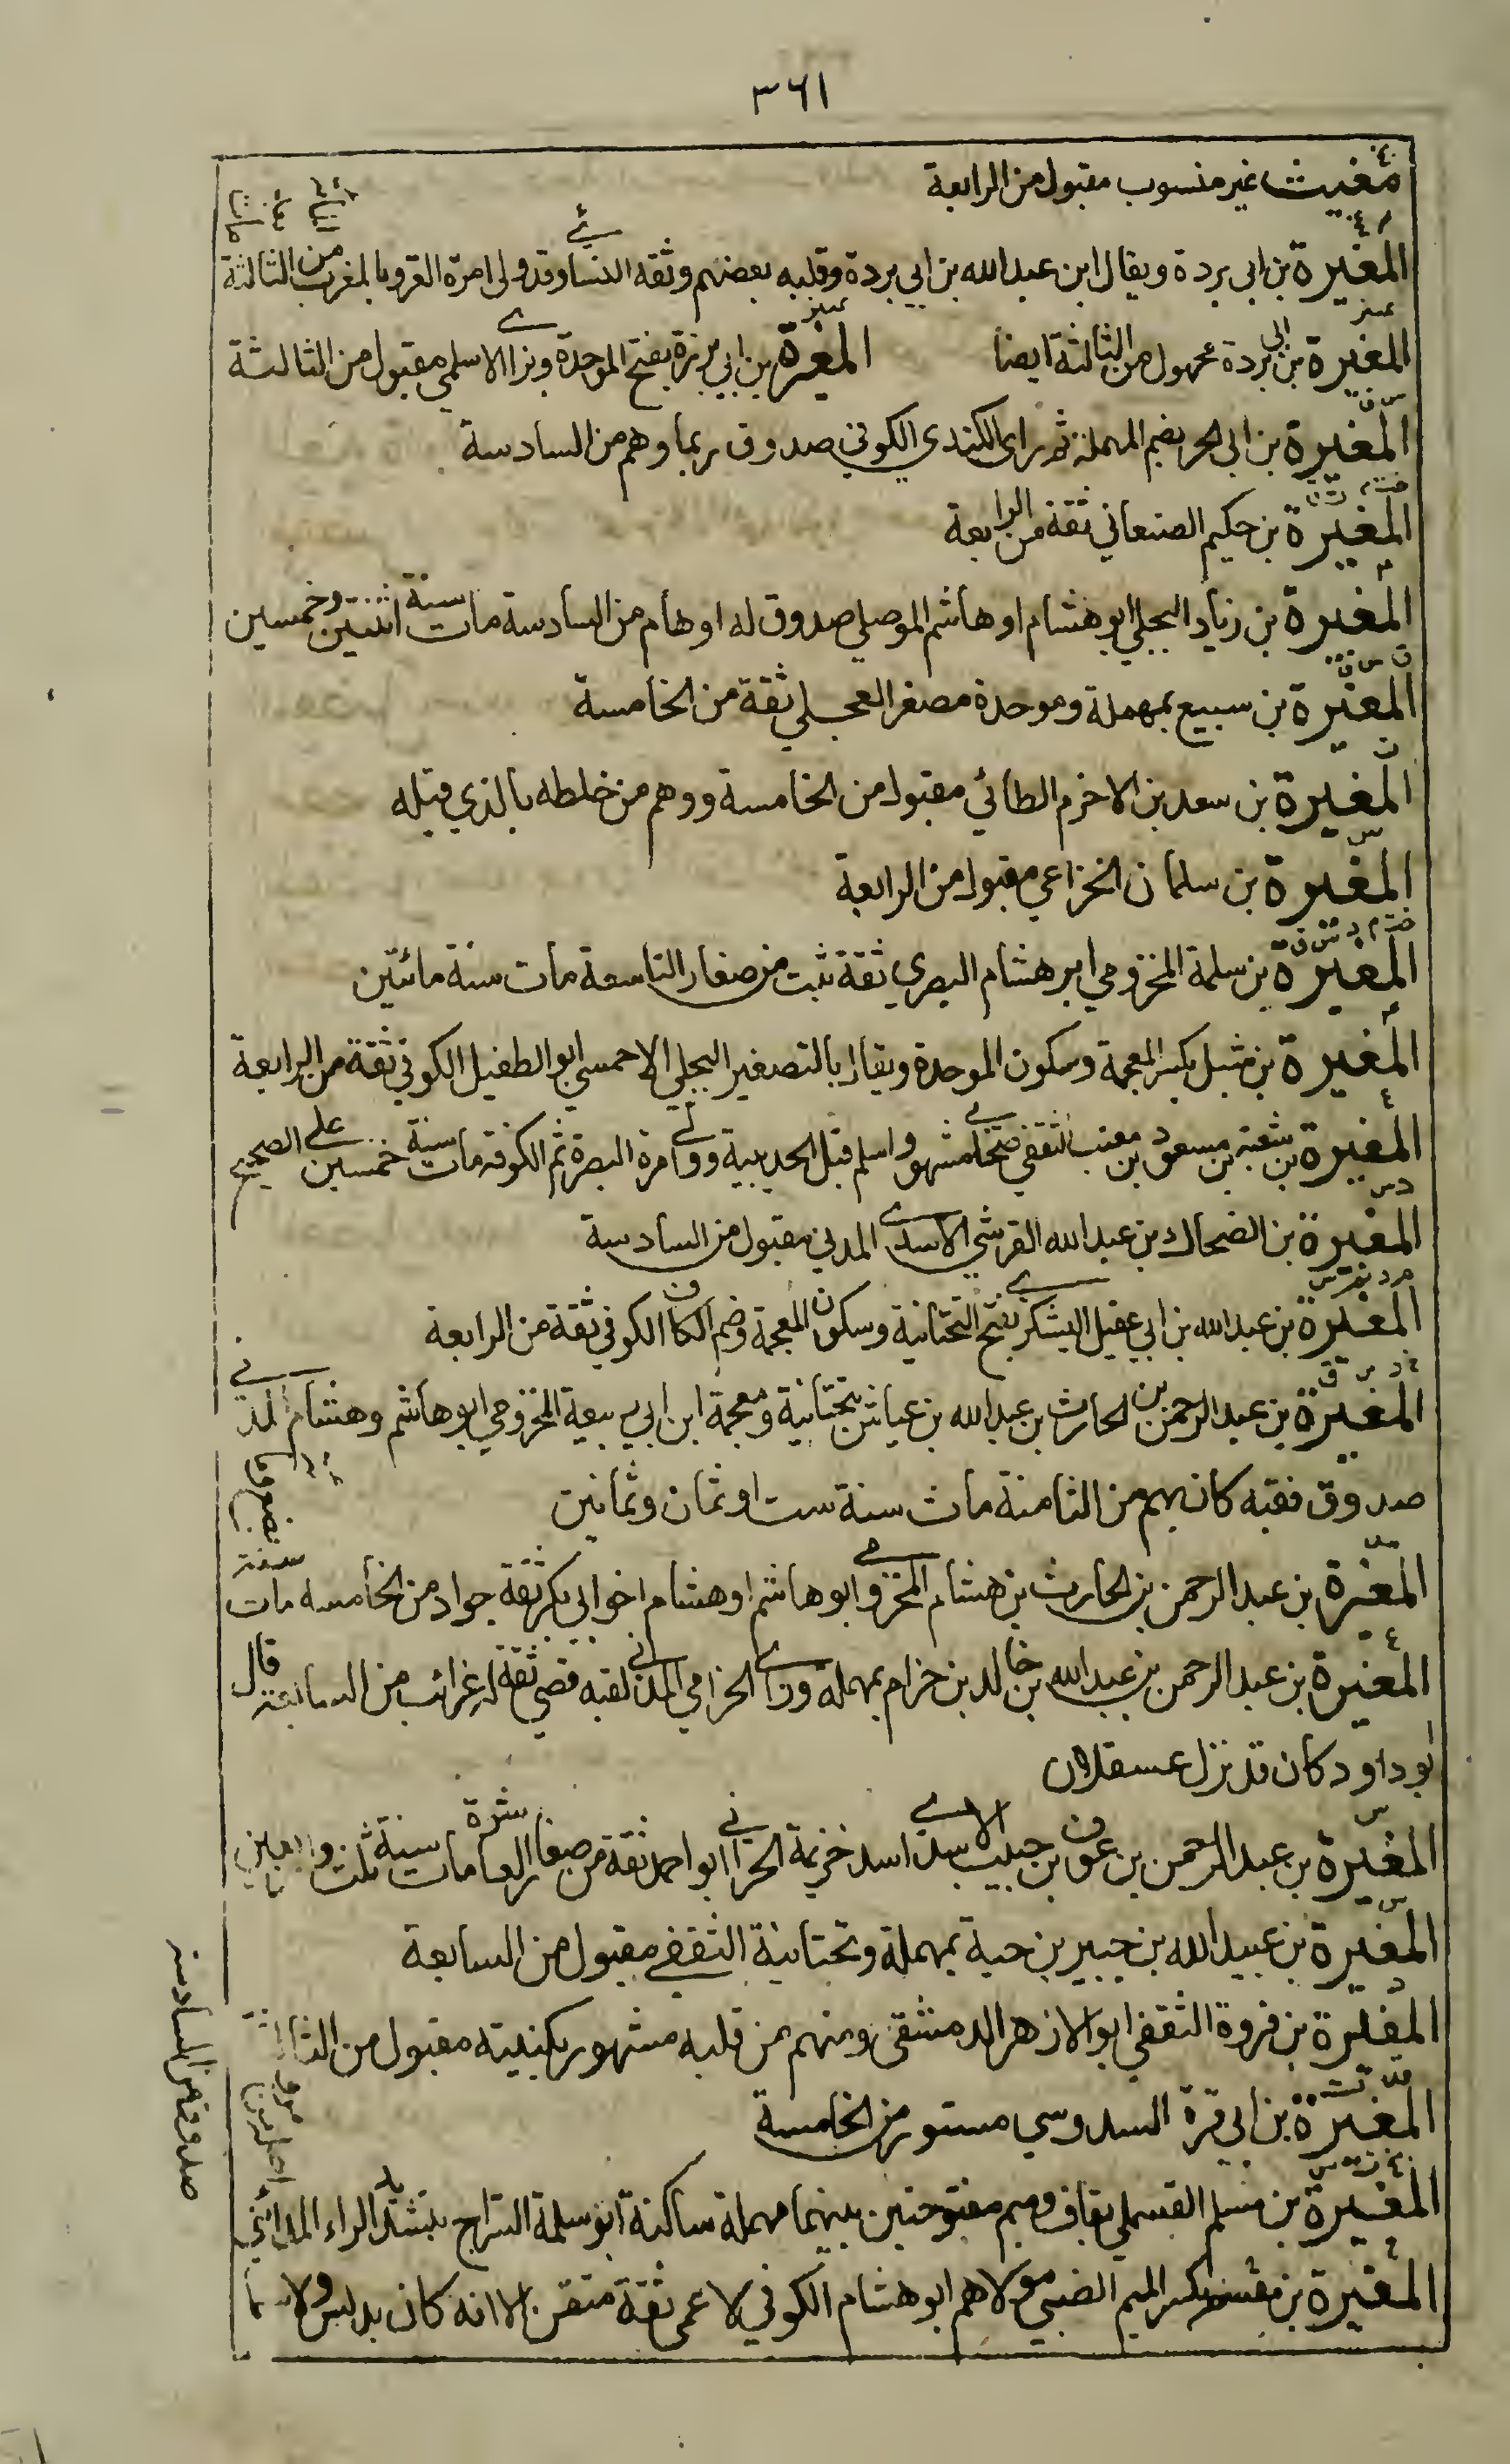 ٣٦١
مغيث غير منسوب مقبول من الرابعة
المغيرة بن ابي بردة ويقال ابن عبد الله بن ابي بردة وقلبه بعضهم وثقه النسائي وقد ولى امرة الغزو بالمغرب من الثالثة
تمييز
المغيرة بن ابي بردة مجهول من الثالثة ايضا
تمييز
المغيرة بن ابي برزة بفتح الموحدة وبزاي الاسلمي مقبول من الثالثة
س ق
المغيرة بن ابي الحر بضم المهملة ثم راى الكندي الكوفي صدوق ربما وهم من السادسة
المغيرة بن حكيم الصنعاني ثقة من الرابعة
٤
المغيرة بن زياد البجلي ابو هشام او هاشم الموصلي صدوق له اوهام من السادسة مات سنة اثنتين وخمسين
ت س ق
المغيرة بن سبيع بمهملة وموحدة مصغر العجلي ثقة من الخامسة
ت
المغيرة بن سعد بن الاخرم الطائي مقبول من الخامسة ووهم من خلطه بالذي قبله
س
المغيرة بن سلمان الخزاعي مقبول من الرابعة
المغيرة بن سلمة المخزومي ابو هشام البصري ثقة ثبت من صغار التاسعة مات سنة مائتين
المغيرة بن شبل بكسر المعجمة وسكون الموحدة ويقال بالتصغير البجلي الاحمسي ابو الطفيل الكوفي ثقة من الرابعة
ع
المغيرة بن شعبة بن مسعود بن معتب الثقفي صحابي مشهور اسلم قبل الحديبية وولي امرة البصرة ثم الكوفة مات سنة خمسين على الصحيح
د س
المغيرة بن الضحاك بن عبد الله القرشي الاسدي المدني مقبول من السادسة
المغيرة بن عبد الله بن ابي عقيل اليشكري بفتح التحتانية وسكون المعجمة وضم الكاف الكوفي ثقة من الرابعة
المغيرة بن عبد الرحمن بن الحارث بن عبد الله بن عياش بتحتانية ومعجمة ابن ابي ربيعة المخزومي ابو هاشم وهشام المدني
صدوق فقيه كان يهم من الثامنة مات سنة ست او ثمان وثمانين
المغيرة بن عبد الرحمن بن الحارث بن هشام المخزومي ابو هاشم او هشام اخو ابي بكر ثقة جواد من الخامسة مات سنة
بضع ومائة
ع
المغيرة بن عبد الرحمن بن عبد الله بن خالد بن حزام بمهملة وزاي الحزامي المدني لقبه قصي ثقة له غرائب من السابعة قال
ابو داود كان قد نزل عسقلان
س
المغيرة بن عبد الرحمن بن عوف بن حبيب الاسدي اسد خزيمة الحراني ابو احمد ثقة من صغار العاشرة مات سنة ثلث واربعين
س
المغيرة بن عبيد الله بن جبير بن حية بمهملة وتحتانية الثقفي مقبول من السابعة
د
المغيرة بن فروة الثقفي ابو الازهر الدمشقي ومنهم من قلبه مشهور بكنيته مقبول من الثالثة
المغيرة بن ابي قرة السدوسي مستور من الخامسة
المغيرة بن مسلم القسملي بقاف وميم مفتوحتين بينهما مهملة ساكنة ابو سلمة السراج بتشديد الراء المدائني
صدوق من السادسة
ع
المغيرة بن مقسم بكسر الميم الضبي مولاهم ابو هشام الكوفي الاعمى ثقة متقن الا انه كان يدلس ولا